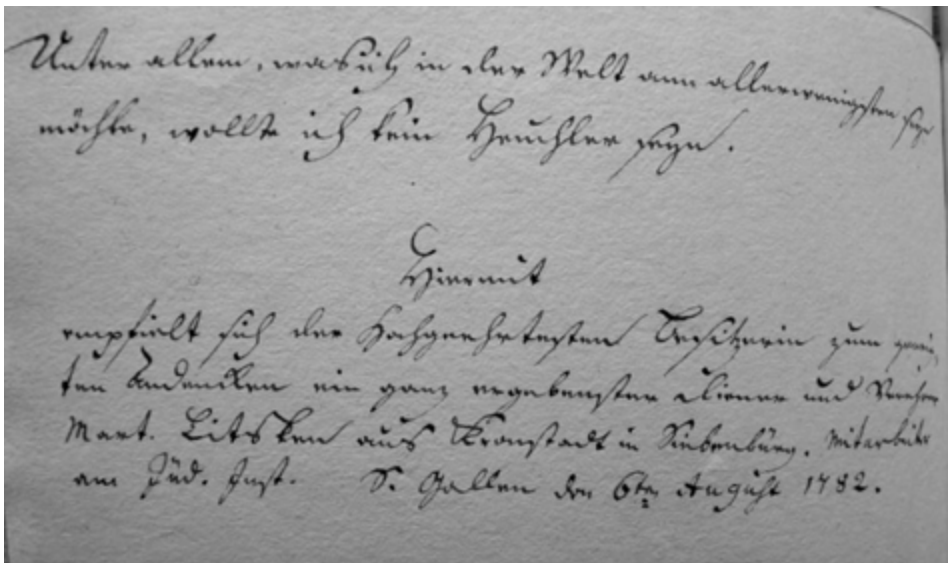 Unter allem, was ich in der Welt am allerwenigsten seyn
möchte, wollte ich kein Heuchler seyn.
Hiermit
empfielt sich der Hochgeehrtesten Besitzerin zum geneig
ten Andencken ein ganz ergebenster Diener und Verehrer
Mart. Litsken aus Kronstadt in Siebenbürg. Mitarbeiter
am Jüd. Inst. S. Gallen den 6ten August 1782.